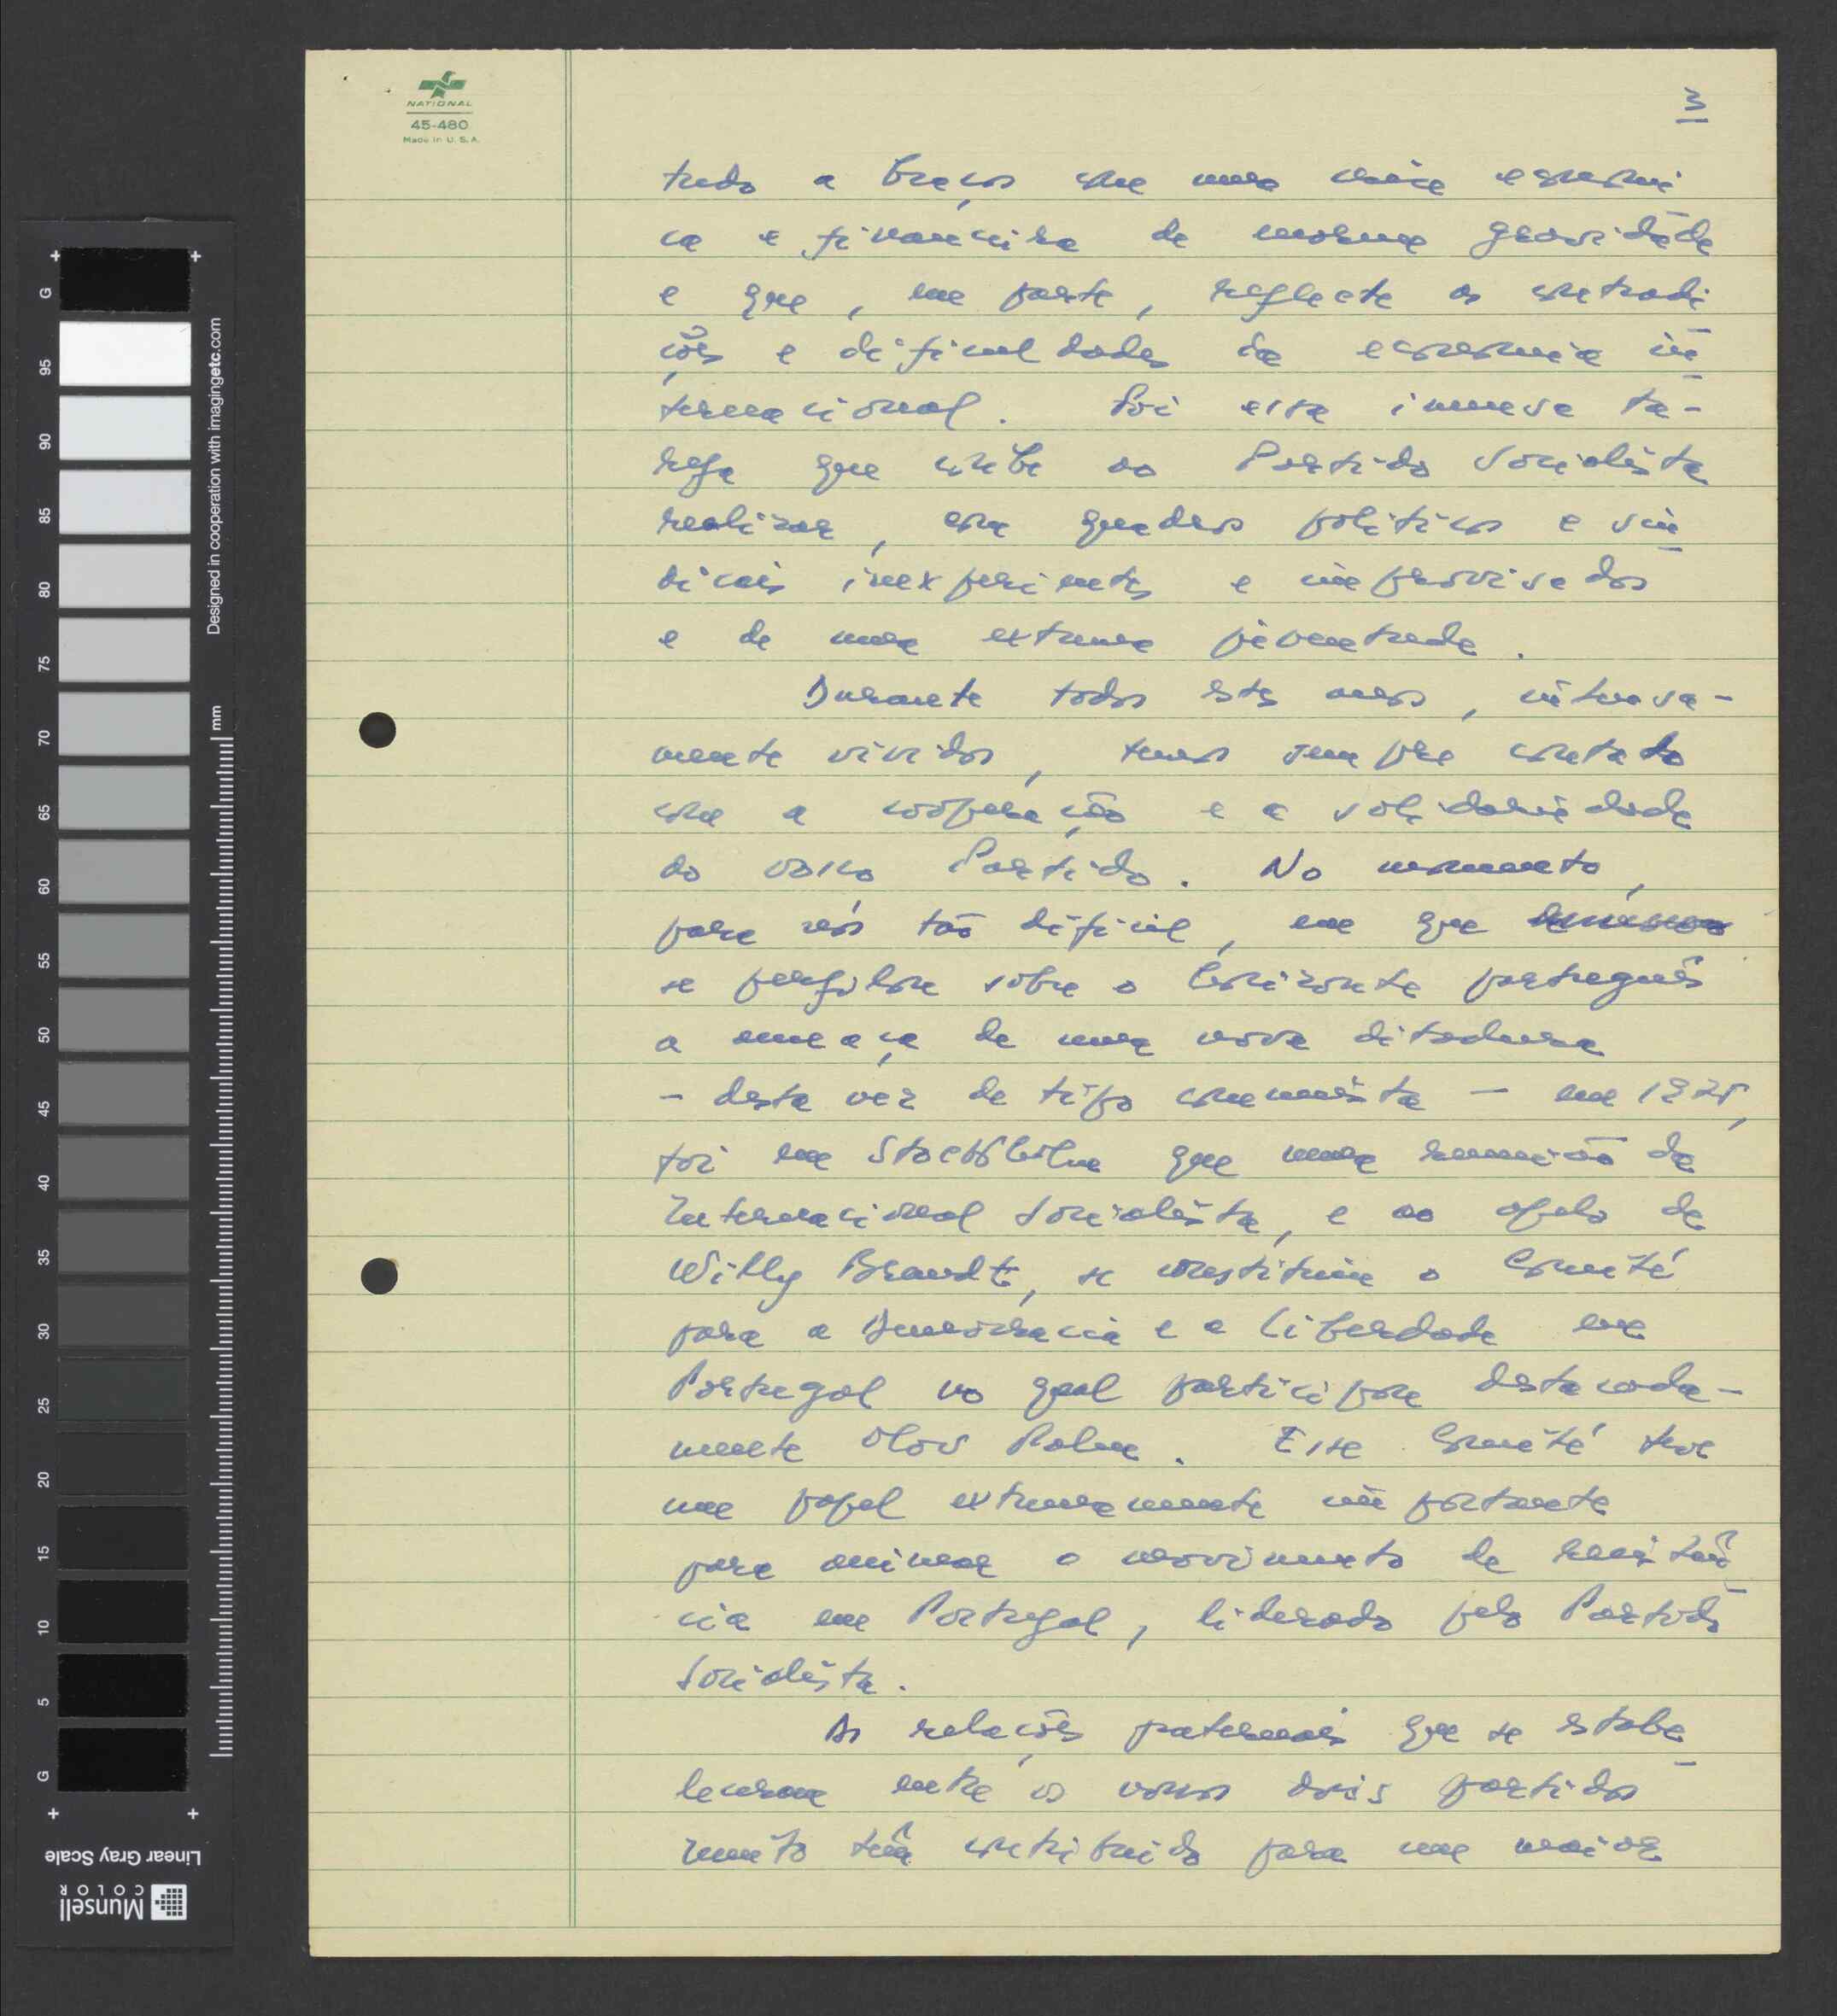 NATIONAL
45-480
Made in U.S.A.
3
tudo a braços com uma crise económi
ca e financeira de enorme gravidade
e que, em parte, reflecte as contradi
ções e dificuldades da economia in
ternacional. Foi essa imensa ta-
refa que coube ao Partido Socialista
realizar, com quadros políticos e sin
dicais inexperientes e improvisados
e de uma extrema juventude.
Durante todos estes anos, intensa-
mente vividos, temos sempre contado
com a cooperação e a solidariedade
do vosso Partido. No momento,
para nós tão difícil, em que
se perfilou sobre o horizonte português
a ameaça de uma nova ditadura
- desta vez de tipo comunista - em 1975,
foi em Stockholm que uma reunião da
Internacional Socialista, e ao apelo de
Willy Brandt, se constituiu o Comité
para a Democracia e a Liberdade em
Portugal no qual participou destacada-
mente Olov Palme. Esse Comité teve
um papel extremamente importante
para animar o movimento de resistên
cia em Portugal, liderado pelo Partido
Socialista.
As relações fraternais que se estabe
leceram entre os nossos dois partidos
muito têm contribuido para um maior
Designed in cooperation with imagingetc.com
mm
G
95
90
85
80
75
70
65
60
55
50
45
40
35
30
25
20
15
10
5
G
Linear Gray Scale
Munsell
COLOR